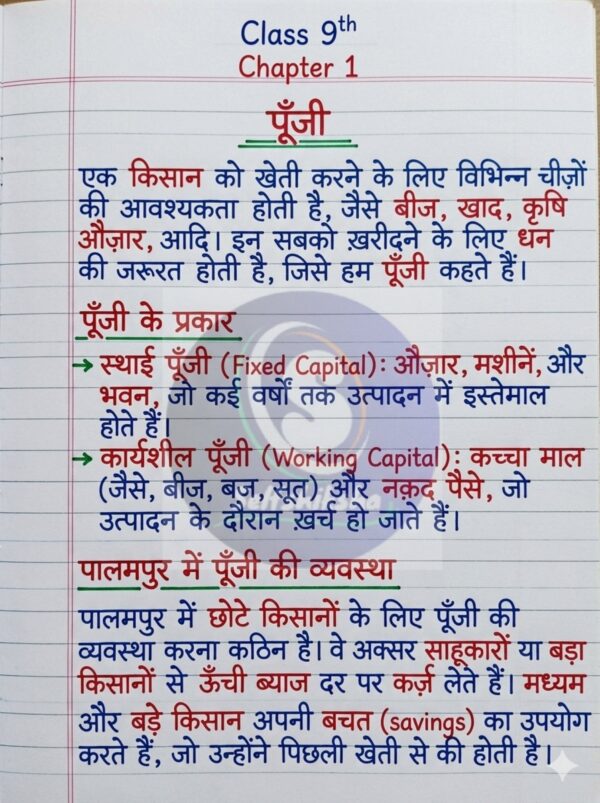 Class 9th
Chapter 1
पूँजी
एक किसान को खेती करने के लिए विभिन्न चीज़ों
की आवश्यकता होती है, जैसे बीज, खाद, कृषि
औज़ार, आदि। इन सबको ख़रीदने के लिए धन
की जरूरत होती है, जिसे हम पूँजी कहते हैं।
पूँजी के प्रकार
→ स्थाई पूँजी (Fixed Capital): औज़ार, मशीनें, और
भवन, जो कई वर्षों तक उत्पादन में इस्तेमाल
होते हैं।
→ कार्यशील पूँजी (Working Capital): कच्चा माल
(जैसे, बीज, बज, सूत) और नक़द पैसे, जो
उत्पादन के दौरान ख़र्च हो जाते हैं।
पालमपुर में पूँजी की व्यवस्था
पालमपुर में छोटे किसानों के लिए पूँजी की
व्यवस्था करना कठिन है। वे अक्सर साहूकारों या बड़ा
किसानों से ऊँची ब्याज दर पर कर्ज़ लेते हैं। मध्यम
और बड़े किसान अपनी बचत (savings) का उपयोग
करते हैं, जो उन्होंने पिछली खेती से की होती है।